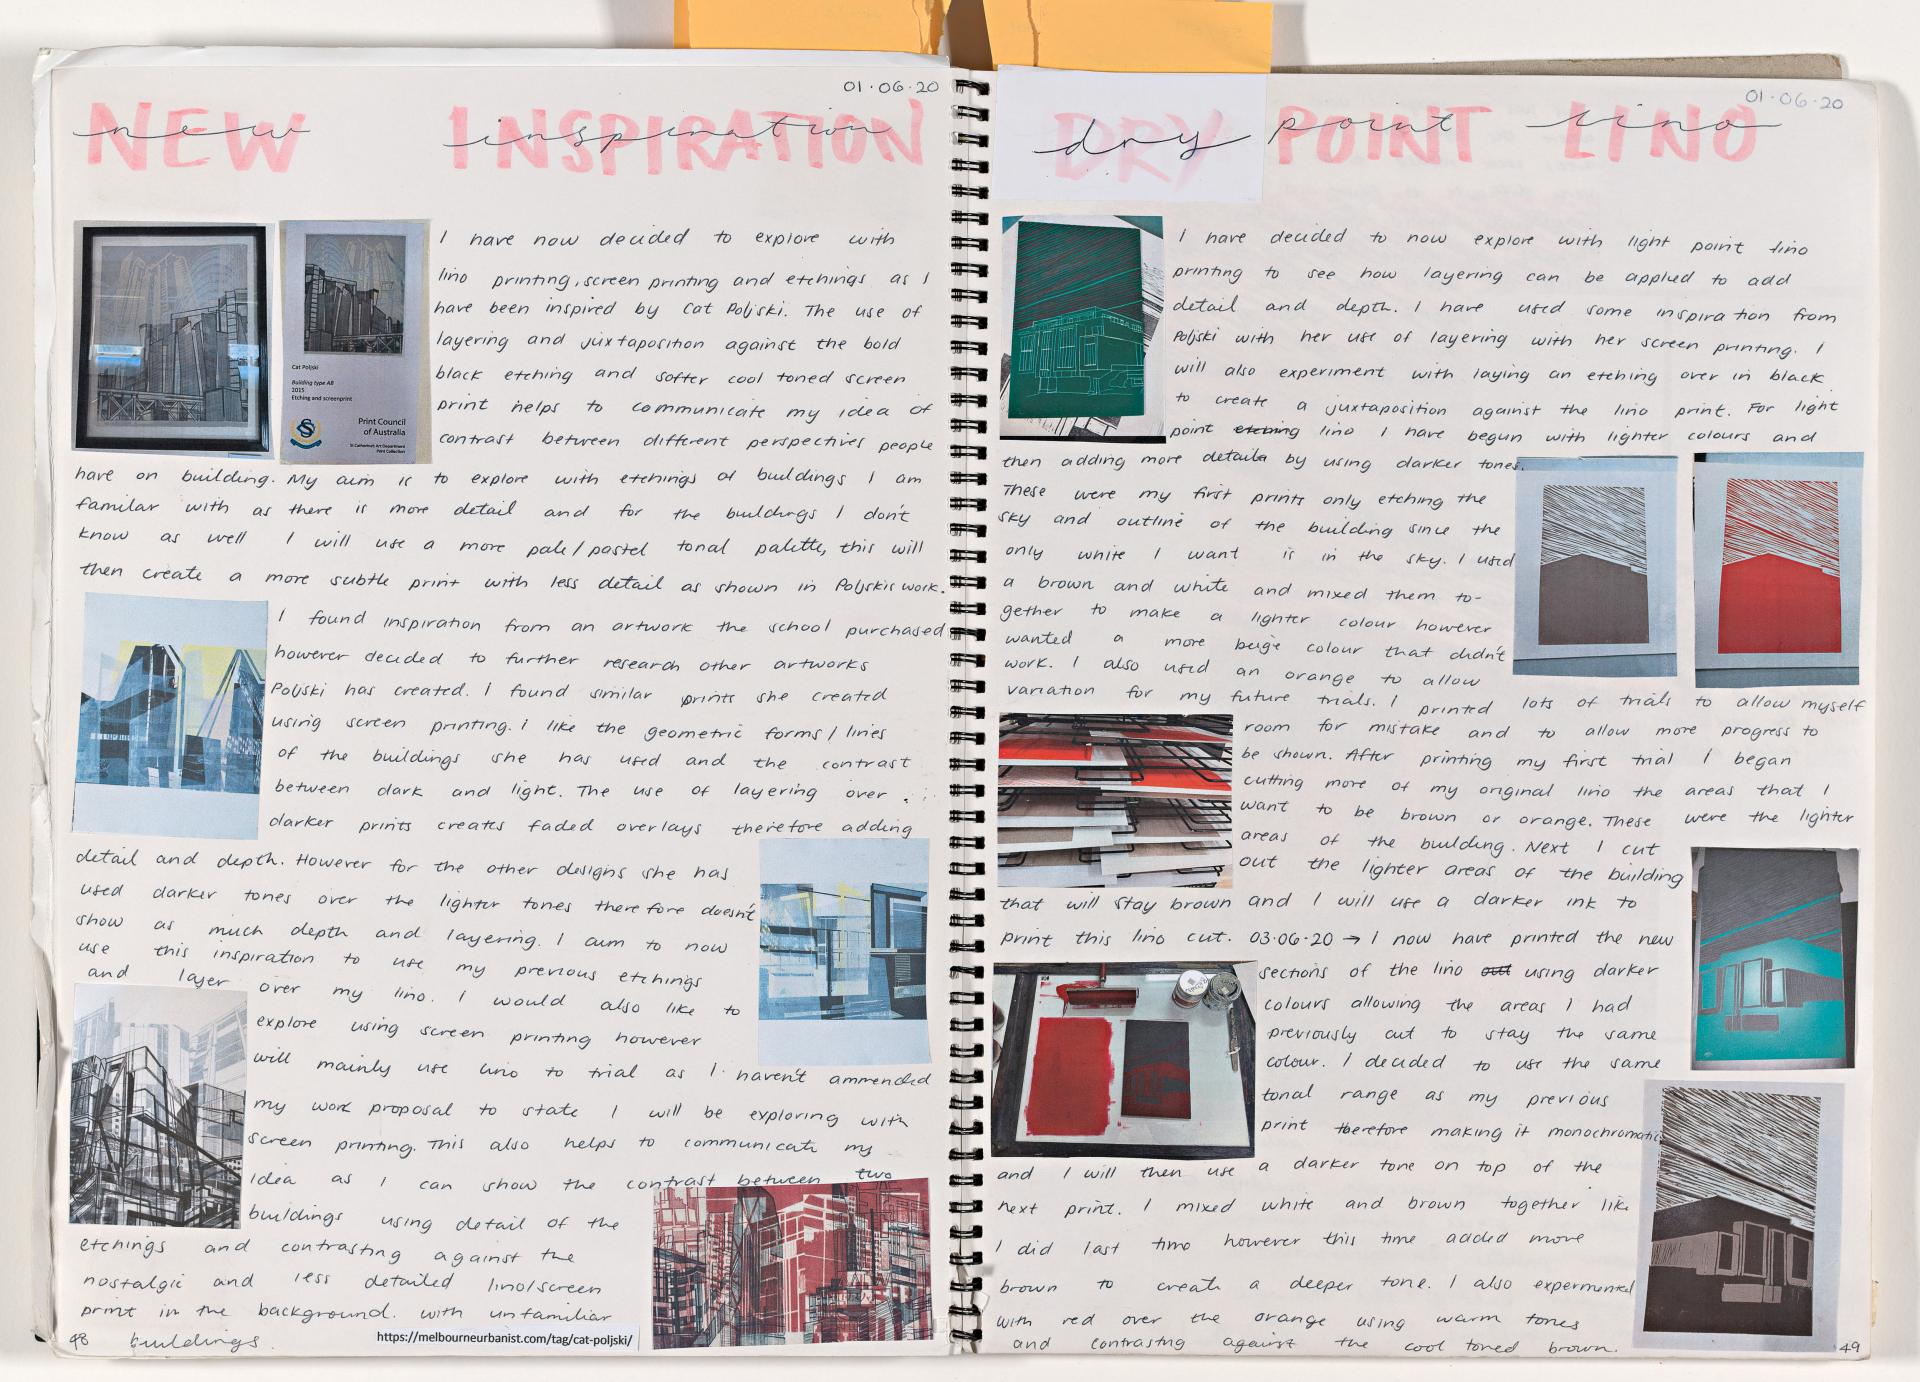 01·06·20
NEW INSPIRATION
new inspiration
Cat Poljski
Building type AB
2015
Etching and screenprint
Print Council
of Australia
St Catherine's Art Department
Print Collection
I have now decided to explore with
lino printing, screen printing and etchings as I
have been inspired by Cat Poljski. The use of
layering and juxtaposition against the bold
black etching and softer cool toned screen
print helps to communicate my idea of
contrast between different perspectives people
have on building. My aim is to explore with etchings of buildings I am
familar with as there is more detail and for the buildings I don't
know as well I will use a more pale/pastel tonal palette, this will
then create a more subtle print with less detail as shown in Poljskis work.
I found inspiration from an artwork the school purchased
however decided to further research other artworks
Poljski has created. I found similar prints she created
using screen printing. I like the geometric forms/lines
of the buildings she has used and the contrast
between dark and light. The use of layering over
darker prints creates faded overlays therefore adding
detail and depth. However for the other designs she has
used darker tones over the lighter tones therefore doesn't
show as much depth and layering. I aim to now
use this inspiration to use my previous etchings
and layer over my lino. I would also like to
explore using screen printing however
will mainly use lino to trial as I haven't ammended
my work proposal to state I will be exploring with
screen printing. This also helps to communicate my
idea as I can show the contrast between two
buildings using detail of the
etchings and contrasting against the
nostalgic and less detailed lino/screen
print in the background. with unfamiliar
buildings.
https://melbourneurbanist.com/tag/cat-poljski/
48
01·06·20
DRY POINT LINO
dry point lino
I have decided to now explore with light point lino
printing to see how layering can be applied to add
detail and depth. I have used some inspiration from
Poljski with her use of layering with her screen printing. I
will also experiment with laying an etching over in black
to create a juxtaposition against the lino print. For light
point etching lino I have begun with lighter colours and
then adding more details by using darker tones.
These were my first prints only etching the
sky and outline of the building since the
only white I want is in the sky. I used
a brown and white and mixed them to-
gether to make a lighter colour however
wanted a more beige colour that didn't
work. I also used an orange to allow
variation for my future trials. I printed lots of trials to allow myself
room for mistake and to allow more progress to
be shown. After printing my first trial I began
cutting more of my original lino the areas that I
want to be brown or orange. These were the lighter
areas of the building. Next I cut
out the lighter areas of the building
that will stay brown and I will use a darker ink to
print this lino cut. 03·06·20 → I now have printed the new
sections of the lino out using darker
colours allowing the areas I had
previously cut to stay the same
colour. I decided to use the same
tonal range as my previous
print therefore making it monochromatic
and I will then use a darker tone on top of the
next print. I mixed white and brown together like
I did last time however this time added more
brown to create a deeper tone. I also experimented
with red over the orange using warm tones
and contrasting against the cool toned brown.
49